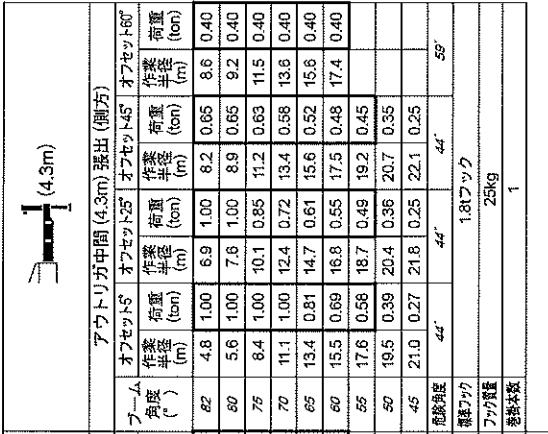 (4.3m)
アウトリガ中間 (4.3m) 張出 (側方)
ブーム角度 (°) オフセット5° オフセット25° オフセット45° オフセット60°
作業半径(m) 荷重(ton) 作業半径(m) 荷重(ton) 作業半径(m) 荷重(ton) 作業半径(m) 荷重(ton)
82 4.8 1.00 6.9 1.00 8.2 0.65 8.6 0.40
80 5.6 1.00 7.6 1.00 8.9 0.65 9.2 0.40
75 8.4 1.00 10.1 0.85 11.2 0.63 11.5 0.40
70 11.1 1.00 12.4 0.72 13.4 0.58 13.6 0.40
65 13.4 0.81 14.7 0.61 15.6 0.52 15.6 0.40
60 15.5 0.69 16.8 0.55 17.5 0.48 17.4 0.40
55 17.6 0.58 18.7 0.49 19.2 0.45
50 19.5 0.39 20.4 0.36 20.7 0.35
45 21.0 0.27 21.8 0.25 22.1 0.25
危険角度 44° 44° 44° 59°
標準フック 1.8tフック
フック質量 25kg
巻掛本数 1